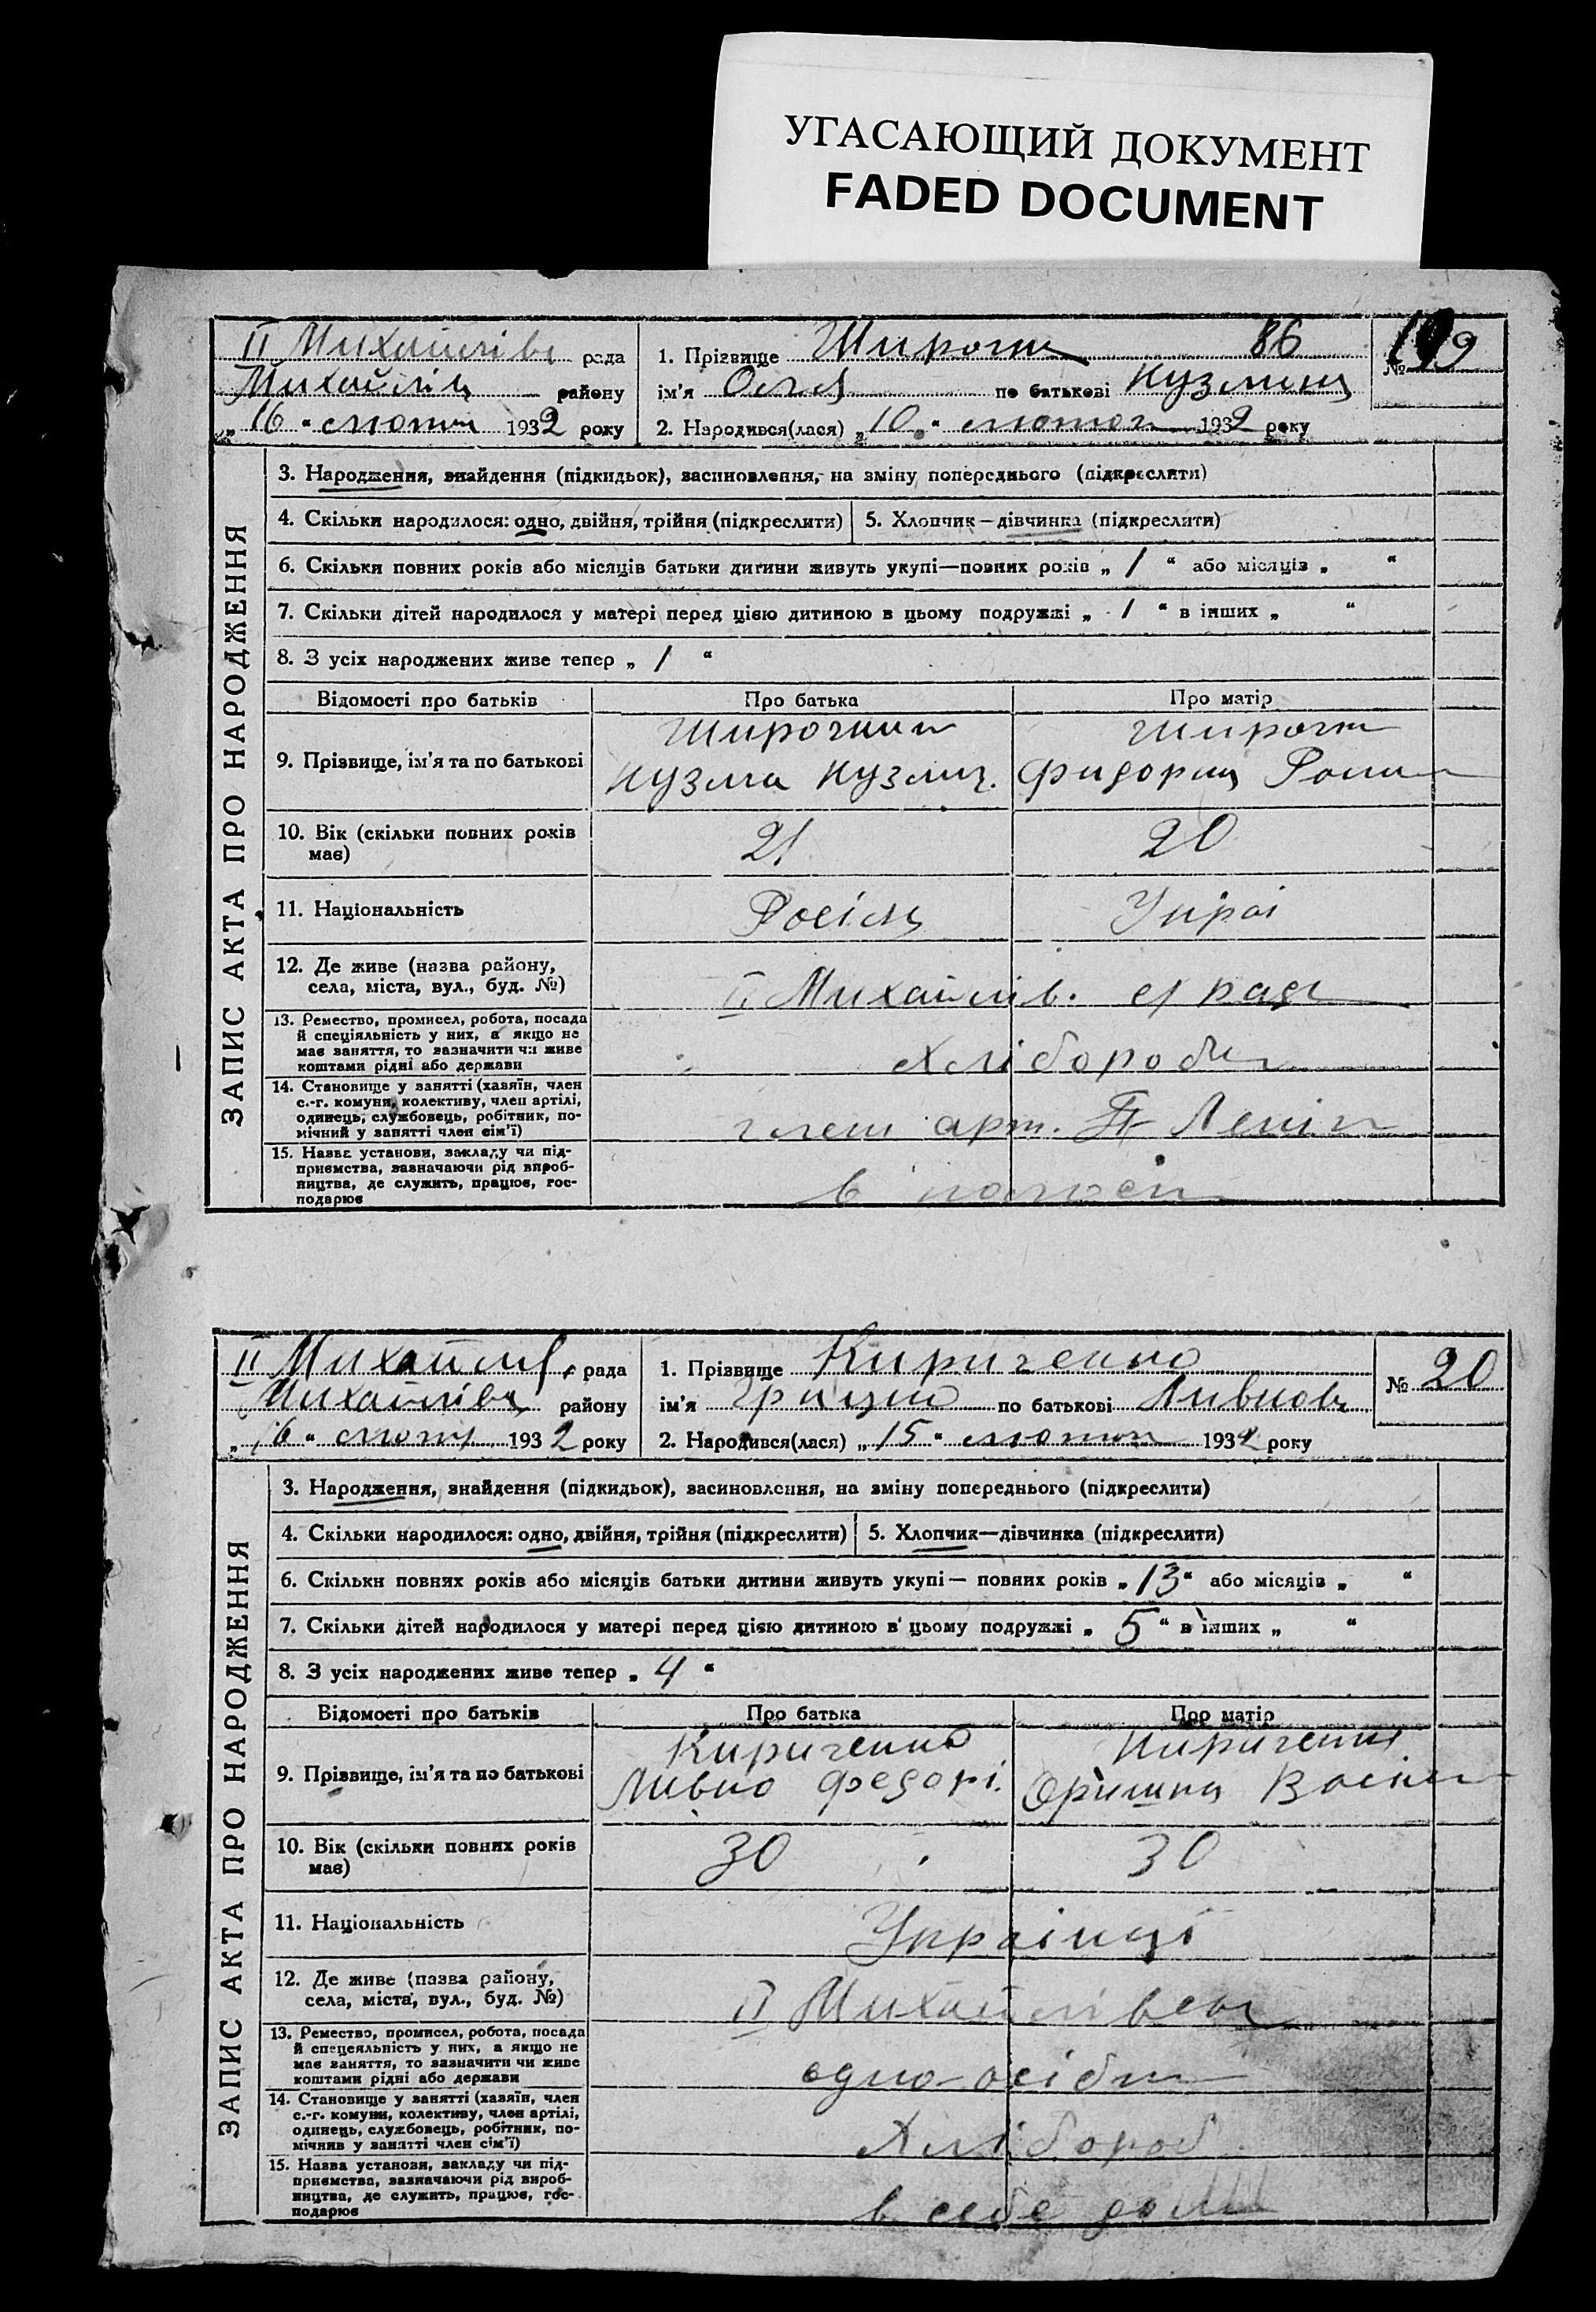 УГАСАЮЩИЙ ДОКУМЕНТ
FADED DOCUMENT
ЗАПИС АКТА ПРО НАРОДЖЕННЯ
II Михайлів рада
району
„16“ лютого 1932 року
1. Прізвище 86
ім'я Оля по батькові
2. Народився(лася) „10“ лютого 1932 року
№ 19
3. Народження, знайдення (підкидьок), засиновлення, на зміну попереднього (підкреслити)
4. Скільки народилося: одно, двійня, трійня (підкреслити) 5. Хлопчик—дівчинка (підкреслити)
6. Скільки повних років або місяців батьки дитини живуть укупі—повних років „ 1 “ або місяців „ “
7. Скільки дітей народилося у матері перед цією дитиною в цьому подружжі „ 1 “ в інших „ “
8. З усіх народжених живе тепер „ 1 “
Відомості про батьків Про батька Про матір
9. Прізвище, ім'я та по батькові
Кузма Кузмич.
10. Вік (скільки повних років
має)
21 20
11. Національність
Украі
12. Де живе (назва району,
села, міста, вул., буд. №)
II Михайлів.
13. Ремество, промисел, робота, посада
й спеціяльність у них, а якщо не
має заняття, то зазначити чи живе
коштами рідні або держави
14. Становище у занятті (хазяїн, член
с.-г. комуни, колективу, член артілі,
одинець, службовець, робітник, по-
мічний у занятті член сім'ї)
член арт.
15. Назва установи, закладу чи під-
приємства, зазначаючи рід вироб-
ництва, де служить, працює, гос-
подарює
в
ЗАПИС АКТА ПРО НАРОДЖЕННЯ
II Михайлів рада
району
„16“ 1932 року
1. Прізвище Кириченко
ім'я Грицко по батькові
2. Народився(лася) „15“ лютого 1932 року
№ 20
3. Народження, знайдення (підкидьок), засиновлення, на зміну попереднього (підкреслити)
4. Скільки народилося: одно, двійня, трійня (підкреслити) 5. Хлопчик—дівчинка (підкреслити)
6. Скільки повних років або місяців батьки дитини живуть укупі— повних років „ 13 “ або місяців „ “
7. Скільки дітей народилося у матері перед цією дитиною в цьому подружжі „ 5 “ в інших „ “
8. З усіх народжених живе тепер „ 4 “
Відомості про батьків Про батька Про матір
9. Прізвище, ім'я та по батькові
Кириченко Кириченко
Федорі.
10. Вік (скільки повних років
має)
30 30
11. Національність
Українці
12. Де живе (назва району,
села, міста, вул., буд. №)
II
13. Ремество, промисел, робота, посада
й спецеяльність у них, а якщо не
має заняття, то зазначити чи живе
коштами рідні або держави
14. Становище у занятті (хазяїн, член
с.-г. комуни, колективу, член артілі,
одинець, службовець, робітник, по-
мічник у занятті член сім'ї)
Хлібороб
15. Назва установи, закладу чи під-
приємства, зазначаючи рід вироб-
ництва, де служить, працює, гос-
подарює
в себе дома